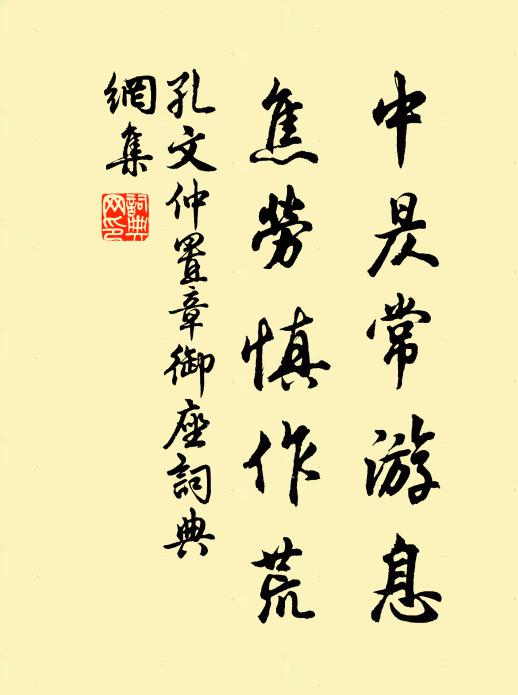 中昃常游息
焦勞慎作荒
孔文仲置章御座詞典
網集
詞典
网印